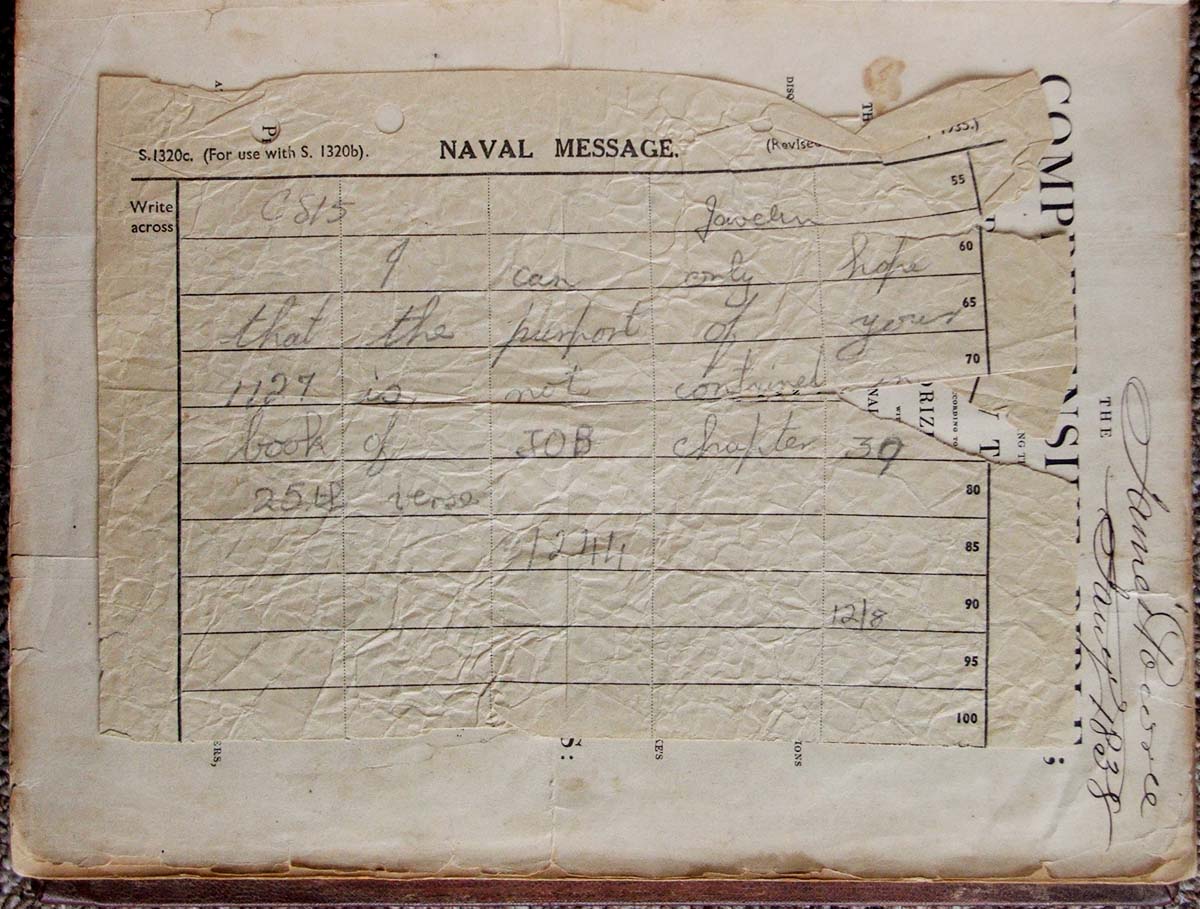 S.1320c. (For use with S. 1320b). NAVAL MESSAGE. (Revised 1935.)
Write across
CS15 Javelin 55
I can only hope 60
that the purport of your 65
1127 is not contained in 70
book of JOB chapter 39
25th verse 80
1244 85
12/8 90
95
100
THE
COMP
NSI
;
DISQ
TH
ORIZ
CCORDING TO
NG T
T T
ERS,
KE'S
IONS
1838